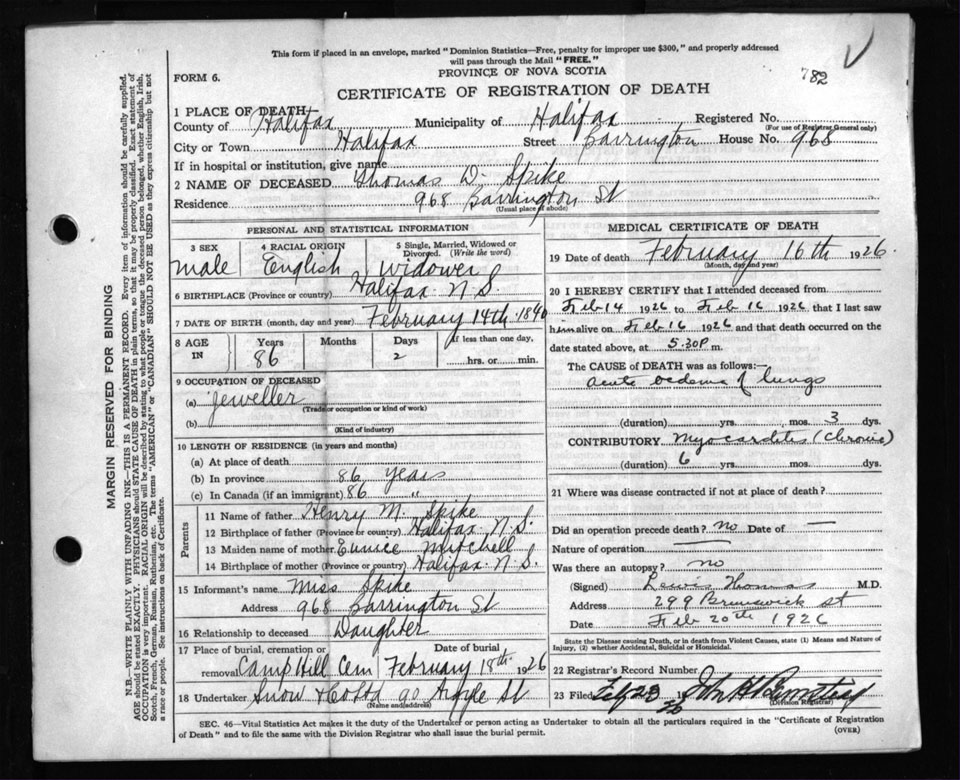 This form if placed in an envelope, marked "Dominion Statistics—Free, penalty for improper use $300," and properly addressed
will pass through the Mail "FREE."
782
FORM 6.
PROVINCE OF NOVA SCOTIA
CERTIFICATE OF REGISTRATION OF DEATH
1 PLACE OF DEATH
County of Halifax Municipality of Halifax Registered No.
(For use of Registrar General only)
City or Town Halifax Street Barrington House No. 968
If in hospital or institution, give name
2 NAME OF DECEASED Thomas D. Spike
Residence 968 Barrington St
(Usual place of abode)
PERSONAL AND STATISTICAL INFORMATION
3 SEX 4 RACIAL ORIGIN 5 Single, Married, Widowed or
Divorced. (Write the word)
male English widower
6 BIRTHPLACE (Province or country) Halifax N.S.
7 DATE OF BIRTH (month, day and year) February 14th 1840
8 AGE IN Years Months Days If less than one day,
86 2 hrs. or min.
9 OCCUPATION OF DECEASED
(a) Jeweller
(Trade or occupation or kind of work)
(b)
(Kind of industry)
10 LENGTH OF RESIDENCE (in years and months)
(a) At place of death
(b) In province 86 years
(c) In Canada (if an immigrant) 86 "
Parents
11 Name of father Henry M. Spike
12 Birthplace of father (Province or country) Halifax N.S.
13 Maiden name of mother Eunice Mitchell
14 Birthplace of mother (Province or country) Halifax N.S.
15 Informant's name Miss Spike
Address 968 Barrington St
16 Relationship to deceased Daughter
17 Place of burial, cremation or Date of burial
removal Camp Hill Cem February 18th 1926
18 Undertaker Snow & Co Ltd 90 Argyle St
(Name and address)
MEDICAL CERTIFICATE OF DEATH
19 Date of death February 16th 1926.
(Month, day and year)
20 I HEREBY CERTIFY that I attended deceased from
Feb 14 1926 to Feb 16 1926 that I last saw
him alive on Feb 16 1926 and that death occurred on the
date stated above, at 5.30 P m.
The CAUSE of DEATH was as follows:—
acute oedema of lungs
(duration) yrs. mos. 3 dys.
CONTRIBUTORY Myocarditis (chronic)
(duration) 6 yrs. mos. dys.
21 Where was disease contracted if not at place of death?
Did an operation precede death? no Date of —
Nature of operation —
Was there an autopsy? no
(Signed) Lewis Thomas M.D.
Address 299 Brunswick st
Date Feb 20th 1926
State the Disease causing Death, or in death from Violent Causes, state (1) Means and Nature of
Injury, (2) whether Accidental, Suicidal or Homicidal.
22 Registrar's Record Number
23 Filed Feb 23 1926
(Division Registrar)
SEC. 46—Vital Statistics Act makes it the duty of the Undertaker or person acting as Undertaker to obtain all the particulars required in the "Certificate of Registration
of Death" and to file the same with the Division Registrar who shall issue the burial permit.
(OVER)
MARGIN RESERVED FOR BINDING
N.B.—WRITE PLAINLY WITH UNFADING INK—THIS IS A PERMANENT RECORD. Every item of information should be carefully supplied.
AGE should be stated EXACTLY. PHYSICIANS should STATE CAUSE OF DEATH in plain terms, so that it may be properly classified. Exact statement of
OCCUPATION is very important. RACIAL ORIGIN will be described by stating to what people or tongue the deceased person belonged, whether English, Irish,
Scotch, French, German, Russian, Ruthenian, etc. The terms "AMERICAN" or "CANADIAN" SHOULD NOT BE USED as they express citizenship but not
a race or people. See instructions on back of Certificate.